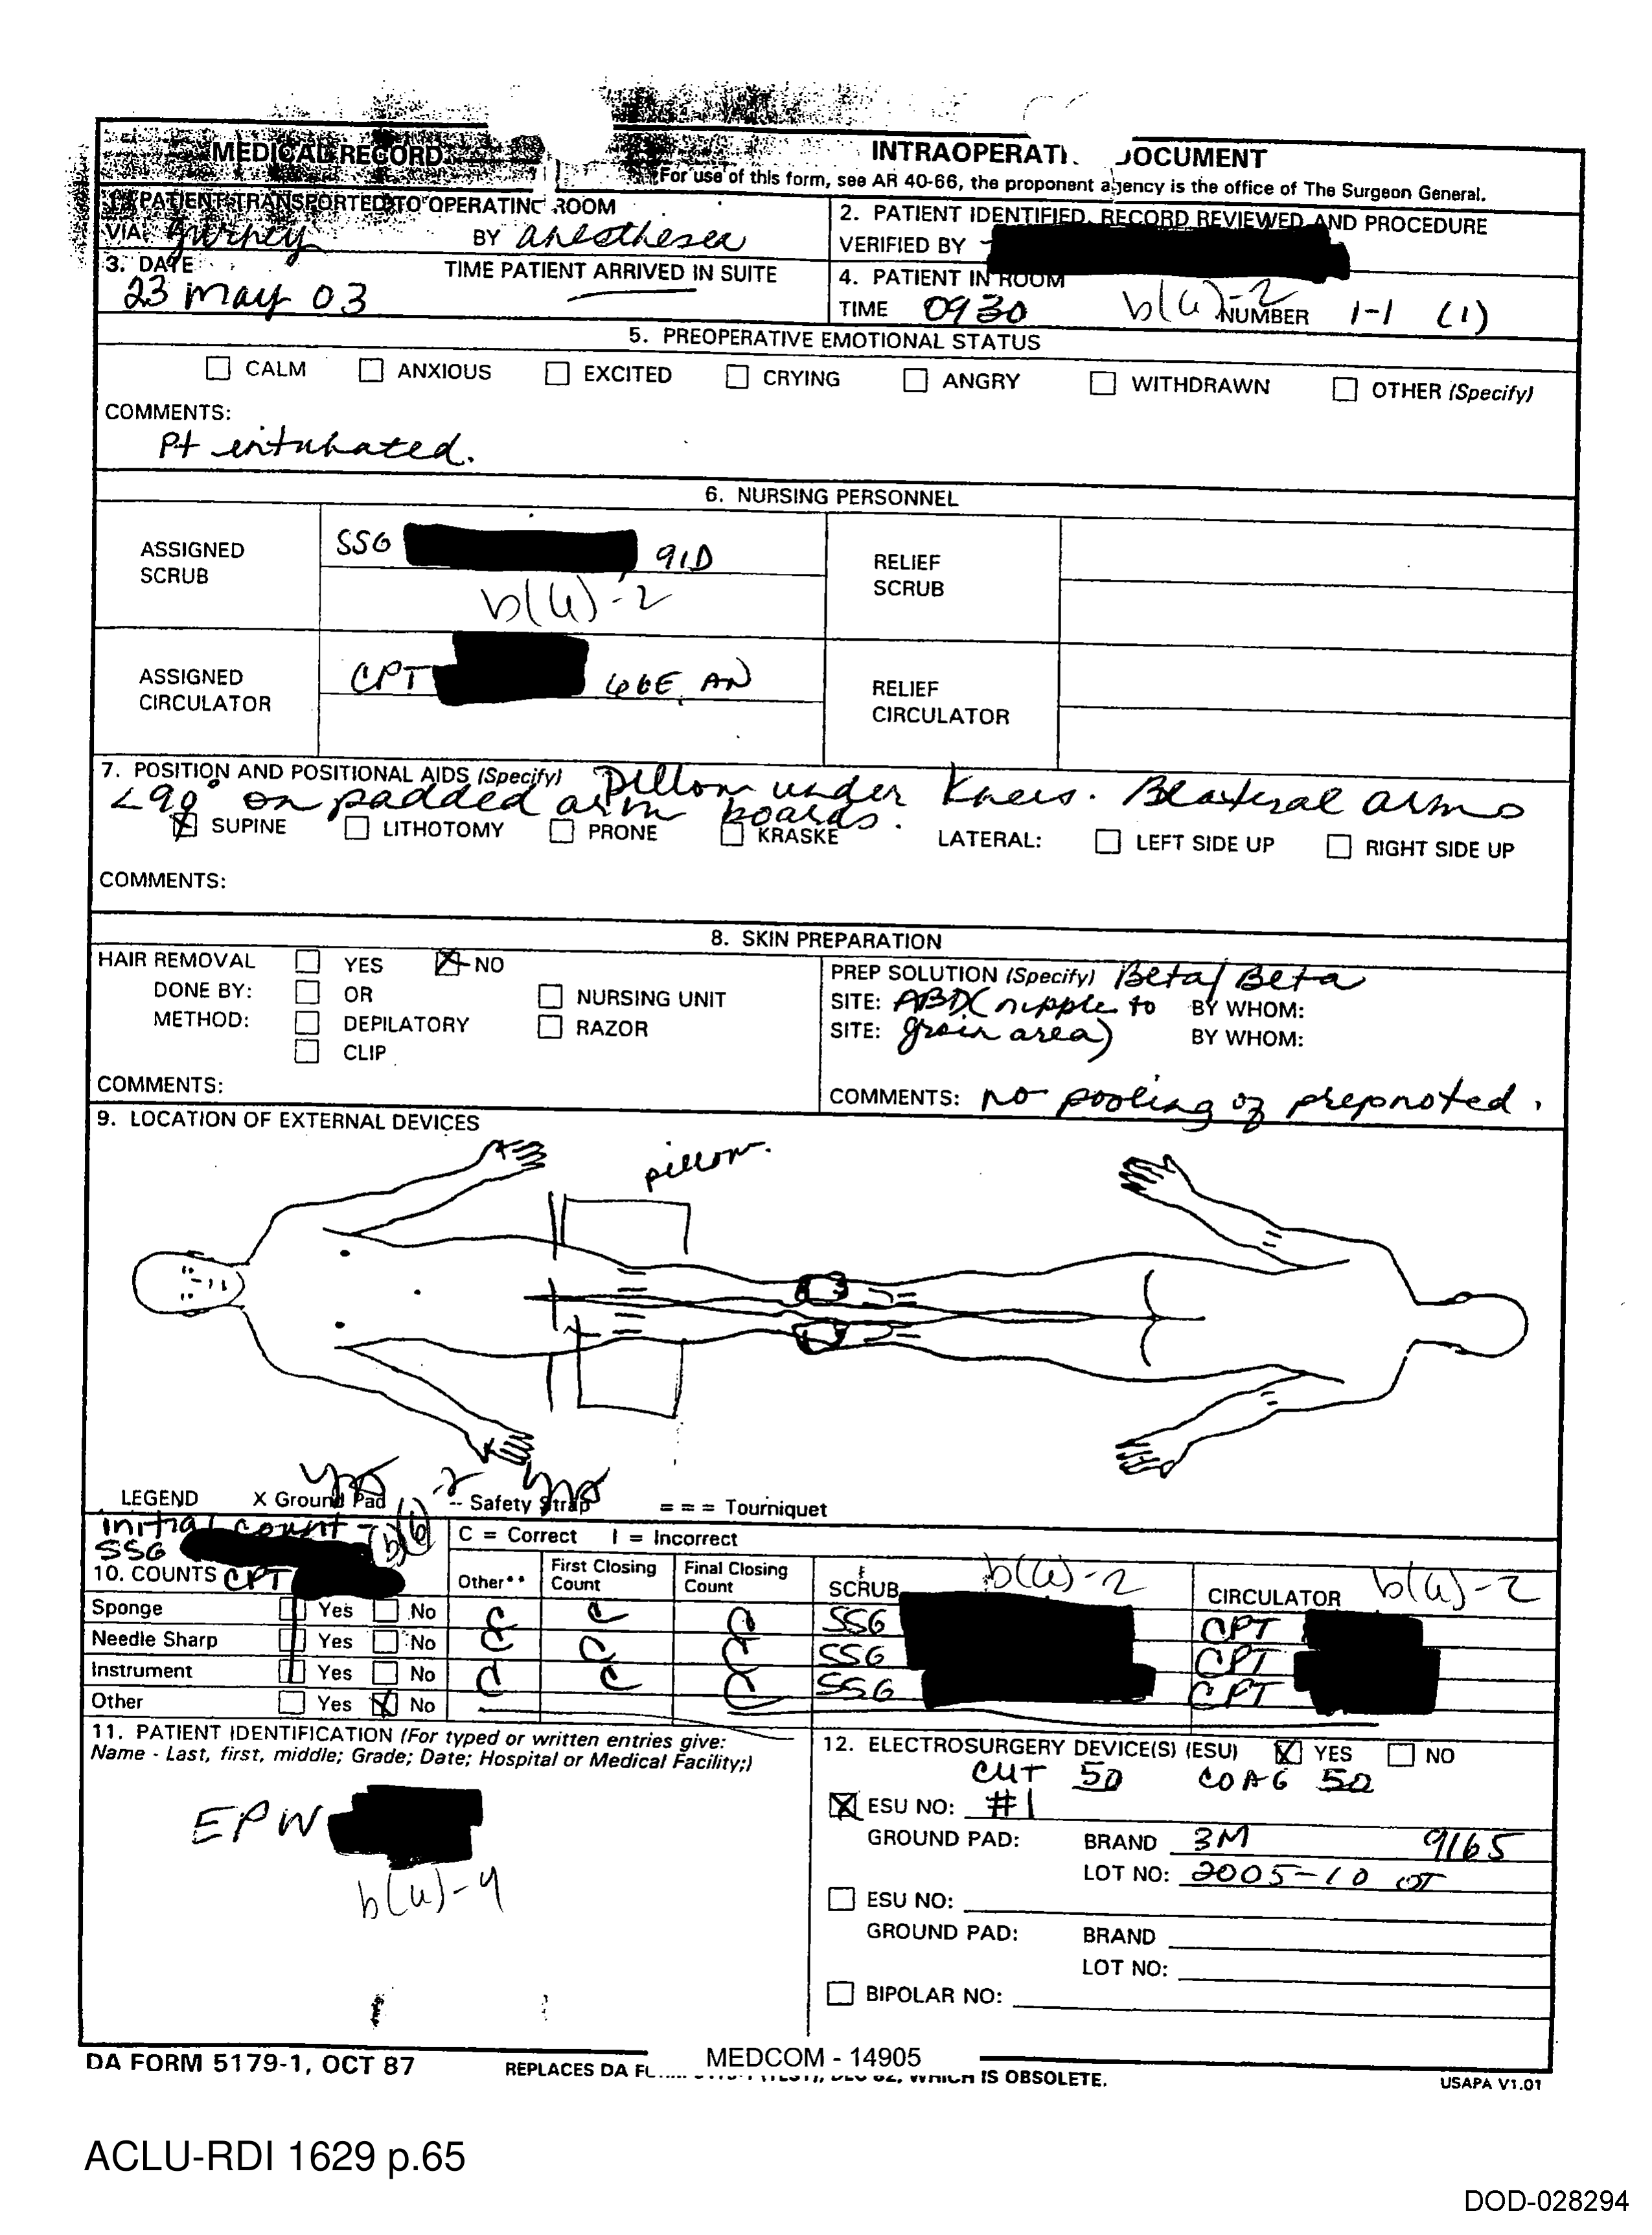 MEDICAL RECORD
INTRAOPERATI   OCUMENT
For use of this form, see AR 40-66, the proponent agency is the office of The Surgeon General.
1. PATIENT TRANSPORTED TO OPERATING ROOM
VIA gurney BY anesthesea
2. PATIENT IDENTIFIED, RECORD REVIEWED AND PROCEDURE
VERIFIED BY
3. DATE TIME PATIENT ARRIVED IN SUITE
23 may 03
4. PATIENT IN ROOM
TIME 0930 b(6)-2 NUMBER 1-1 (1)
5. PREOPERATIVE EMOTIONAL STATUS
CALM ANXIOUS EXCITED CRYING ANGRY WITHDRAWN OTHER (Specify)
COMMENTS:
Pt intubated.
6. NURSING PERSONNEL
ASSIGNED SCRUB
SSG 91D
b(6)-2
RELIEF SCRUB
ASSIGNED CIRCULATOR
CPT 66E, AN
RELIEF CIRCULATOR
7. POSITION AND POSITIONAL AIDS (Specify) Pillow under knees. Bilateral arms
<90° on padded arm boards.
SUPINE LITHOTOMY PRONE KRASKE LATERAL: LEFT SIDE UP RIGHT SIDE UP
COMMENTS:
8. SKIN PREPARATION
HAIR REMOVAL YES NO
DONE BY: OR NURSING UNIT
METHOD: DEPILATORY RAZOR
CLIP
COMMENTS:
PREP SOLUTION (Specify) Beta/Beta
SITE: ABD (nipple to BY WHOM:
SITE: groin area) BY WHOM:
COMMENTS: no pooling of prep noted.
9. LOCATION OF EXTERNAL DEVICES
pillow.
LEGEND X Ground Pad -- Safety Strap = = = Tourniquet
initial count - (b)(6)-2
SSG
10. COUNTS CPT
C = Correct I = Incorrect
Other** First Closing Count Final Closing Count SCRUB b(6)-2 CIRCULATOR b(6)-2
Sponge Yes No C C C SSG CPT
Needle Sharp Yes No C C C SSG CPT
Instrument Yes No C C C SSG CPT
Other Yes No
11. PATIENT IDENTIFICATION (For typed or written entries give:
Name - Last, first, middle; Grade; Date; Hospital or Medical Facility;)
EPW
b(6)-4
12. ELECTROSURGERY DEVICE(S) (ESU) YES NO
CUT 50 COAG 50
ESU NO: #1
GROUND PAD: BRAND 3M 9165
LOT NO: 2005-10 OT
ESU NO:
GROUND PAD: BRAND
LOT NO:
BIPOLAR NO:
DA FORM 5179-1, OCT 87
MEDCOM - 14905
REPLACES DA F 5179-1 (TEST), DEC 82, WHICH IS OBSOLETE.
USAPA V1.01
ACLU-RDI 1629 p.65
DOD-028294